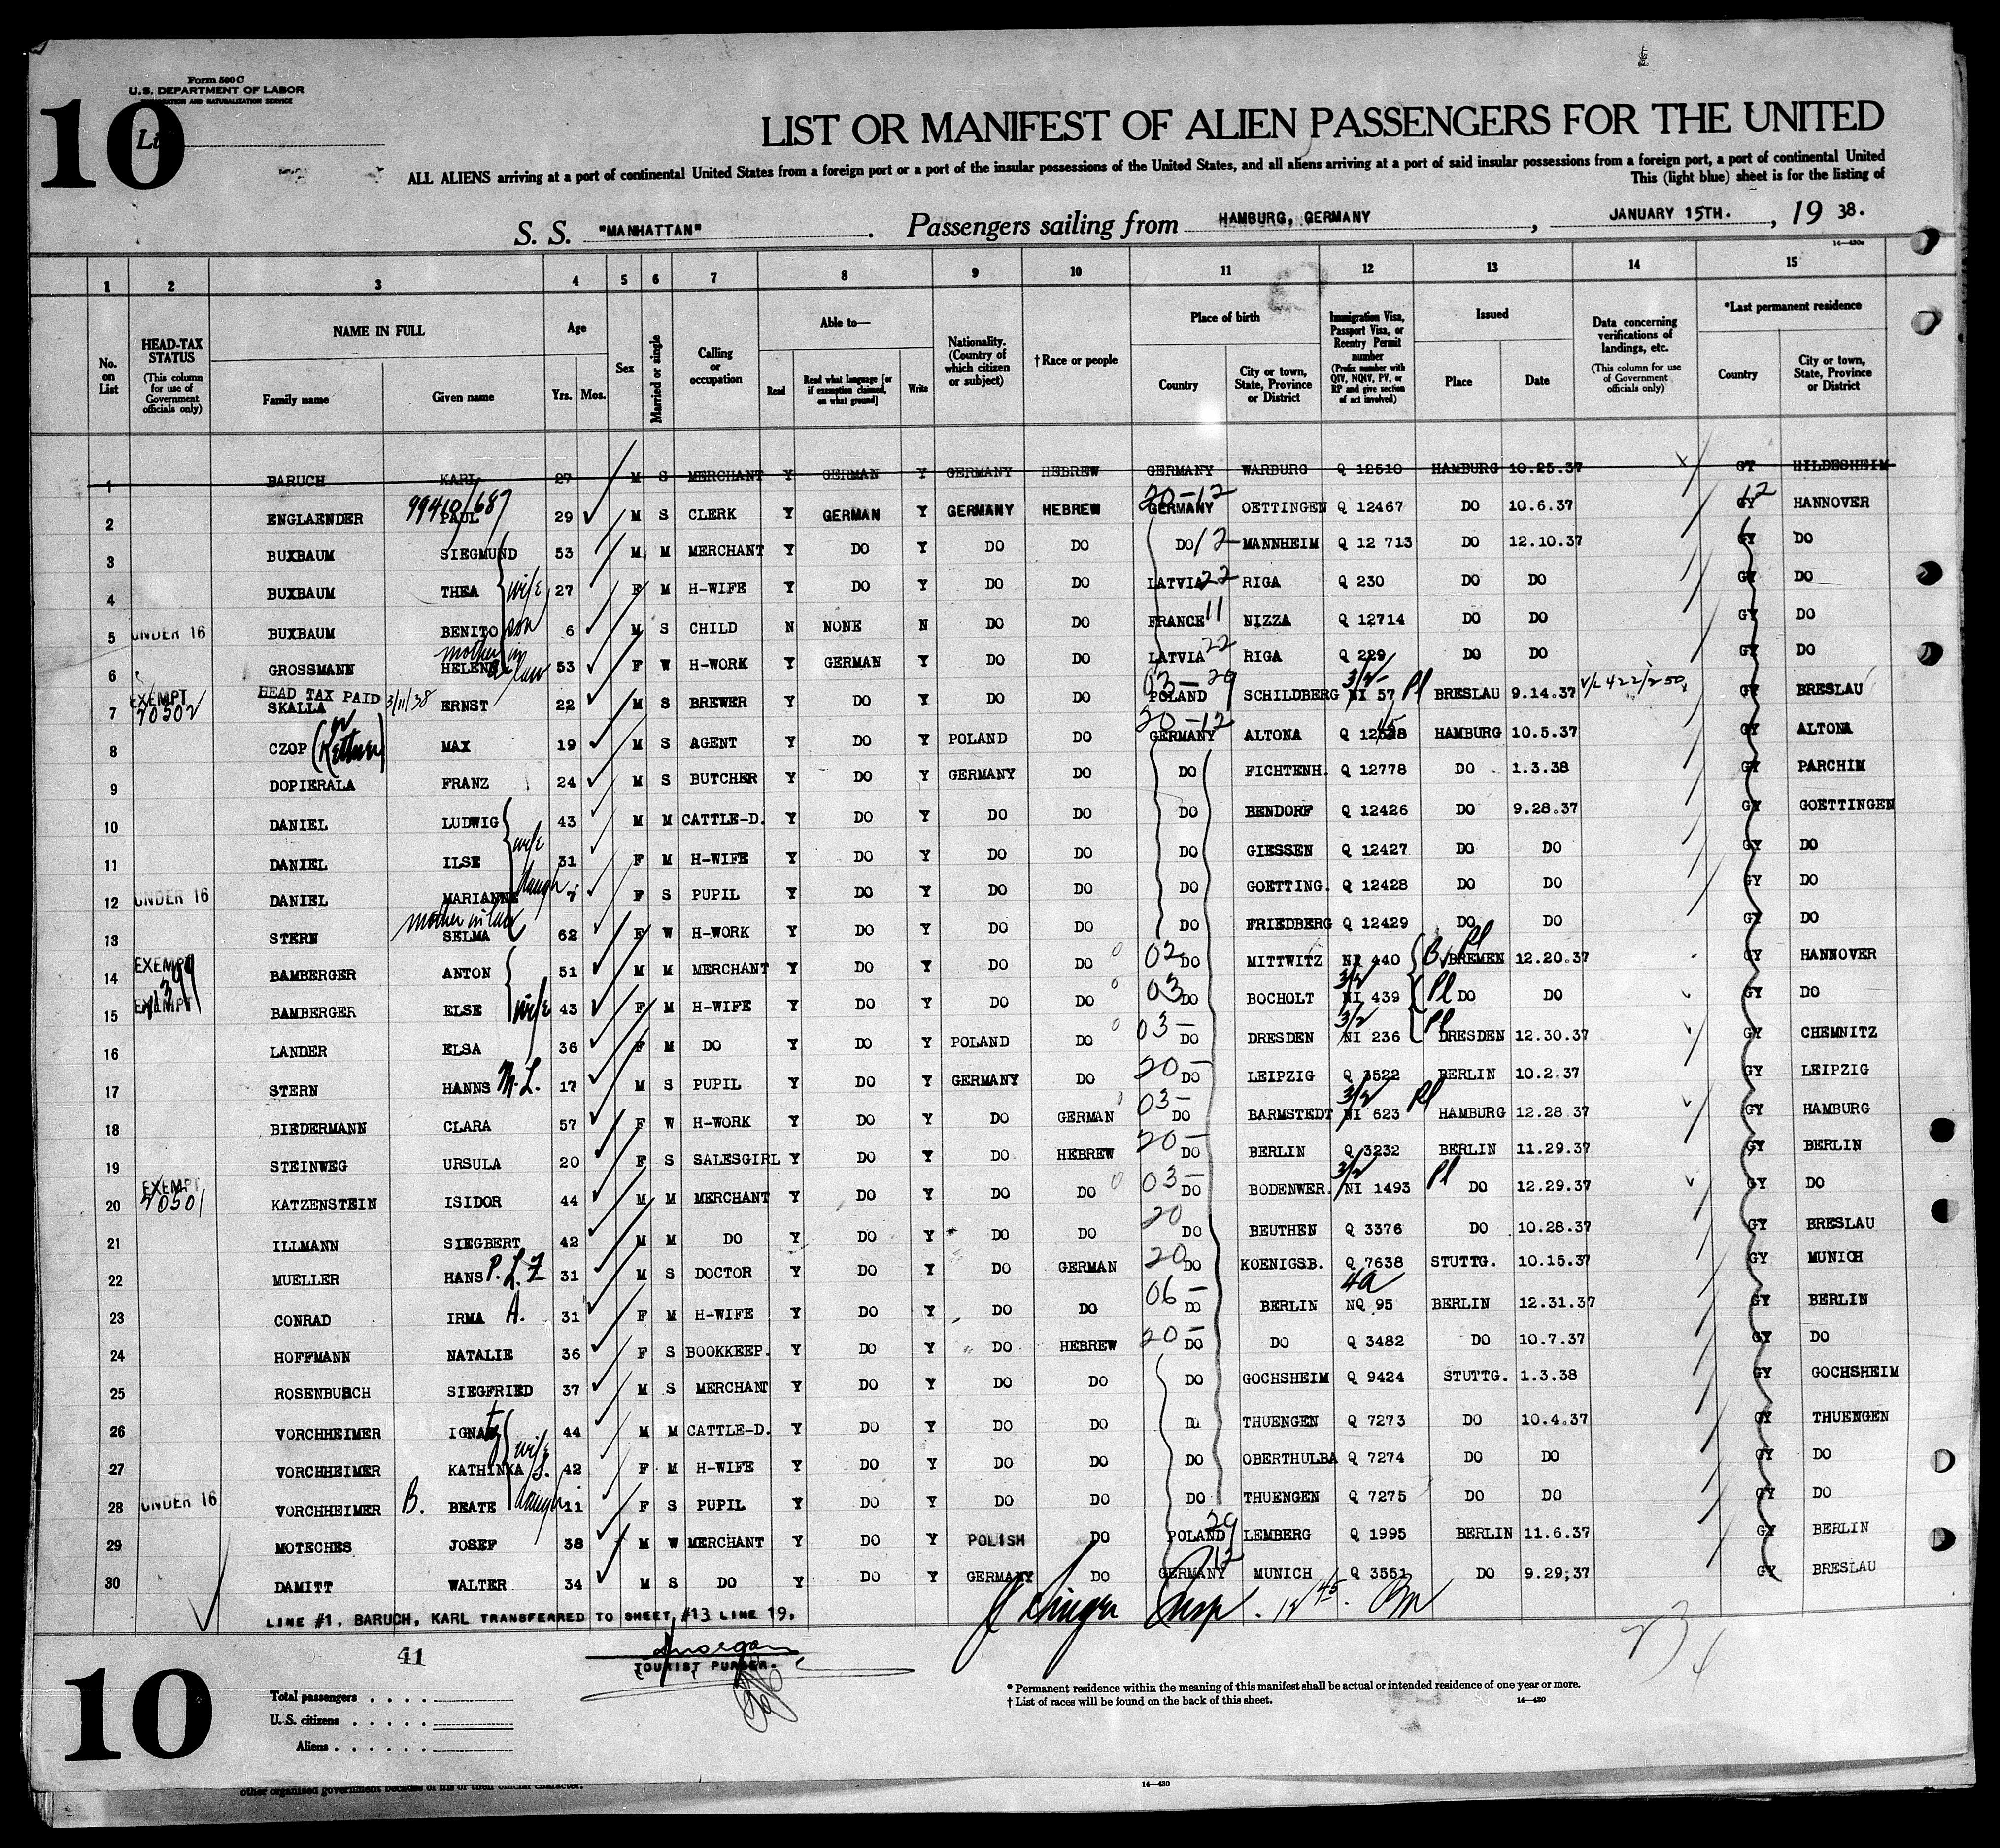 Form 500 C
U.S. DEPARTMENT OF LABOR
IMMIGRATION AND NATURALIZATION SERVICE
10
LIST OR MANIFEST OF ALIEN PASSENGERS FOR THE UNITED
ALL ALIENS arriving at a port of continental United States from a foreign port or a port of the insular possessions of the United States, and all aliens arriving at a port of said insular possessions from a foreign port, a port of continental United
This (light blue) sheet is for the listing of
S. S. "MANHATTAN" . Passengers sailing from HAMBURG, GERMANY , JANUARY 15TH. , 19 38.
1 2 3 4 5 6 7 8 9 10 11 12 13 14 15
No. on List
HEAD-TAX STATUS (This column for use of Government officials only)
NAME IN FULL
Family name Given name
Age Yrs. Mos.
Sex
Married or single
Calling or occupation
Able to— Read Read what language [or if exemption claimed, on what ground] Write
Nationality. (Country of which citizen or subject)
†Race or people
Place of birth Country City or town, State, Province or District
Immigration Visa, Passport Visa, or Reentry Permit number (Prefix number with QIV, NQIV, PV, or RP and give section of act involved)
Issued Place Date
Data concerning verifications of landings, etc. (This column for use of Government officials only)
*Last permanent residence Country City or town, State, Province or District
1 BARUCH KARL 27 M S MERCHANT Y GERMAN Y GERMANY HEBREW GERMANY WARBURG Q 12510 HAMBURG 10.25.37 GY HILDESHEIM
99410/687 20-12 12
2 ENGLAENDER PAUL 29 M S CLERK Y GERMAN Y GERMANY HEBREW GERMANY OETTINGEN Q 12467 DO 10.6.37 GY HANNOVER
3 BUXBAUM SIEGMUND 53 M M MERCHANT Y DO Y DO DO DO 12 MANNHEIM Q 12 713 DO 12.10.37 GY DO
4 BUXBAUM THEA wife 27 F M H-WIFE Y DO Y DO DO LATVIA 22 RIGA Q 230 DO DO GY DO
5 UNDER 16 BUXBAUM BENITO son 6 M S CHILD N NONE N DO DO FRANCE 11 NIZZA Q 12714 DO DO GY DO
6 GROSSMANN HELENE mother in law 53 F W H-WORK Y GERMAN Y DO DO LATVIA 22 RIGA Q 229 DO DO GY DO
EXEMPT HEAD TAX PAID 3/11/38 03-29 3/2-
7 70502 SKALLA ERNST 22 M S BREWER Y DO Y DO DO POLAND SCHILDBERG NI 57 Pl BRESLAU 9.14.37 V/L 422/250 GY BRESLAU
8 CZOP (or Kettner) MAX 19 M S AGENT Y DO Y POLAND DO 20-12 GERMANY ALTONA HAMBURG 10.5.37 GY ALTONA
9 DOPIERALA FRANZ 24 M S BUTCHER Y DO Y GERMANY DO DO FICHTENH. Q 12778 DO 1.3.38 GY PARCHIM
10 DANIEL LUDWIG 43 M M CATTLE-D. Y DO Y DO DO DO BENDORF Q 12426 DO 9.28.37 GY GOETTINGEN
11 DANIEL ILSE wife 31 F M H-WIFE Y DO Y DO DO DO GIESSEN Q 12427 DO DO GY DO
12 UNDER 16 DANIEL MARIANNE daugh 7 F S PUPIL Y DO Y DO DO DO GOETTING. Q 12428 DO DO GY DO
13 STERN mother in law SELMA 62 F W H-WORK Y DO Y DO DO DO FRIEDBERG Q 12429 DO DO GY DO
14 EXEMPT BAMBERGER ANTON 51 M M MERCHANT Y DO Y DO DO 02 DO MITTWITZ NI 440 BREMEN 12.20.37 GY HANNOVER
15 EXEMPT BAMBERGER ELSE wife 43 F M H-WIFE Y DO Y DO DO 03 DO BOCHOLT 3/2 NI 439 Pl DO DO GY DO
16 LANDER ELSA 36 F M DO Y DO Y POLAND DO 03- DO DRESDEN 3/2 NI 236 Pl DRESDEN 12.30.37 GY CHEMNITZ
17 STERN HANNS M.L. 17 M S PUPIL Y DO Y GERMANY DO 20- DO LEIPZIG Q 3522 BERLIN 10.2.37 GY LEIPZIG
18 BIEDERMANN CLARA 57 F W H-WORK Y DO Y DO GERMAN 03- DO BARMSTEDT 3/2 NI 623 Pl HAMBURG 12.28.37 GY HAMBURG
19 STEINWEG URSULA 20 F S SALESGIRL Y DO Y DO HEBREW 20- DO BERLIN Q 3232 BERLIN 11.29.37 GY BERLIN
20 EXEMPT 70501 KATZENSTEIN ISIDOR 44 M M MERCHANT Y DO Y DO DO 03- DO BODENWER. 3/2 NI 1493 Pl DO 12.29.37 GY DO
21 ILLMANN SIEGBERT 42 M M DO Y DO Y DO DO 20 DO BEUTHEN Q 3376 DO 10.28.37 GY BRESLAU
22 MUELLER HANS P.L.F. 31 M S DOCTOR Y DO Y DO GERMAN 20 DO KOENIGSB. Q 7638 STUTTG. 10.15.37 GY MUNICH
23 CONRAD IRMA A. 31 F M H-WIFE Y DO Y DO DO 06- DO BERLIN 4a NQ 95 BERLIN 12.31.37 GY BERLIN
24 HOFFMANN NATALIE 36 F S BOOKKEEP. Y DO Y DO HEBREW 20- DO DO Q 3482 DO 10.7.37 GY DO
25 ROSENBUSCH SIEGFRIED 37 M S MERCHANT Y DO Y DO DO DO GOCHSHEIM Q 9424 STUTTG. 1.3.38 GY GOCHSHEIM
26 VORCHHEIMER IGNATZ 44 M M CATTLE-D. Y DO Y DO DO DO THUENGEN Q 7273 DO 10.4.37 GY THUENGEN
27 VORCHHEIMER KATHINKA S. wife 42 F M H-WIFE Y DO Y DO DO DO OBERTHULBA Q 7274 DO DO GY DO
28 UNDER 16 VORCHHEIMER B. BEATE daugh 11 F S PUPIL Y DO Y DO DO DO THUENGEN Q 7275 DO DO GY DO
29 MOTECHES JOSEF 38 M W MERCHANT Y DO Y POLISH DO POLAND 29 LEMBERG Q 1995 BERLIN 11.6.37 GY BERLIN
30 DAMITT WALTER 34 M S DO Y DO Y GERMANY DO GERMANY 12 MUNICH Q 3551 DO 9.29;37 GY BRESLAU
LINE #1, BARUCH, KARL TRANSFERRED TO SHEET #13 LINE 19,
Insp.
41
TOURIST PURSER.
10
Total passengers . . . .
U.S. citizens . . . . .
Aliens . . . . . .
* Permanent residence within the meaning of this manifest shall be actual or intended residence of one year or more.
† List of races will be found on the back of this sheet. 14—430
other organized government because of his or their official character.
14—430